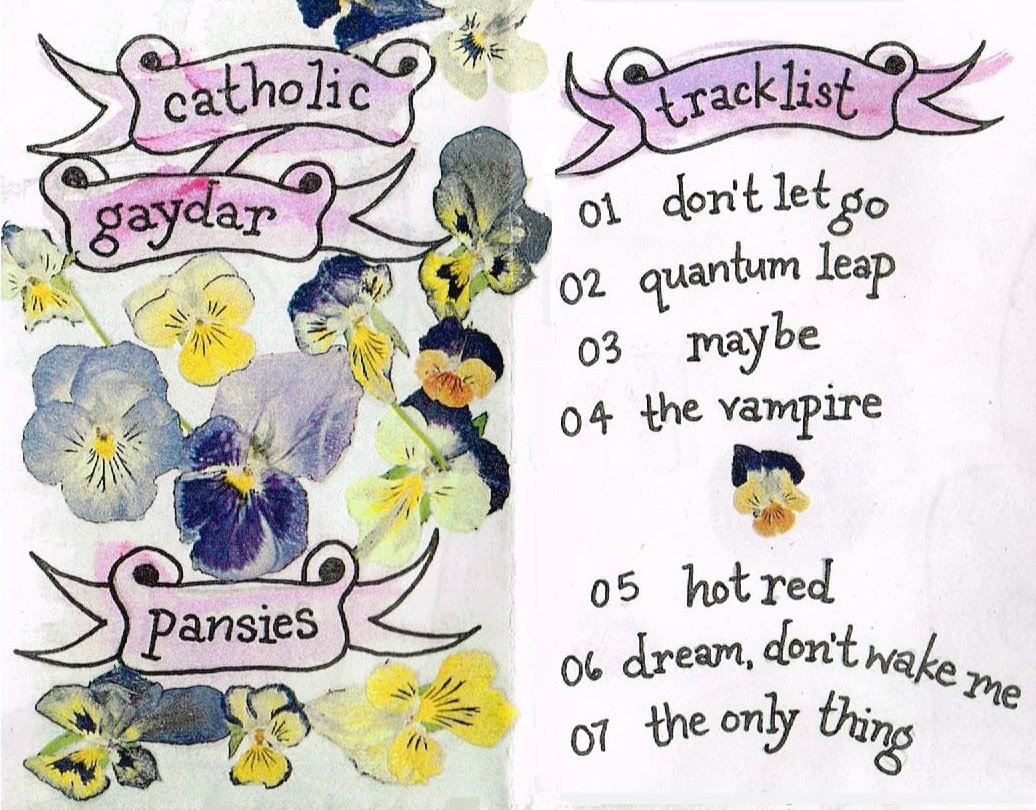 catholic
gaydar
pansies
tracklist
01 don't let go
02 quantum leap
03 maybe
04 the vampire
05 hot red
06 dream, don't wake me
07 the only thing